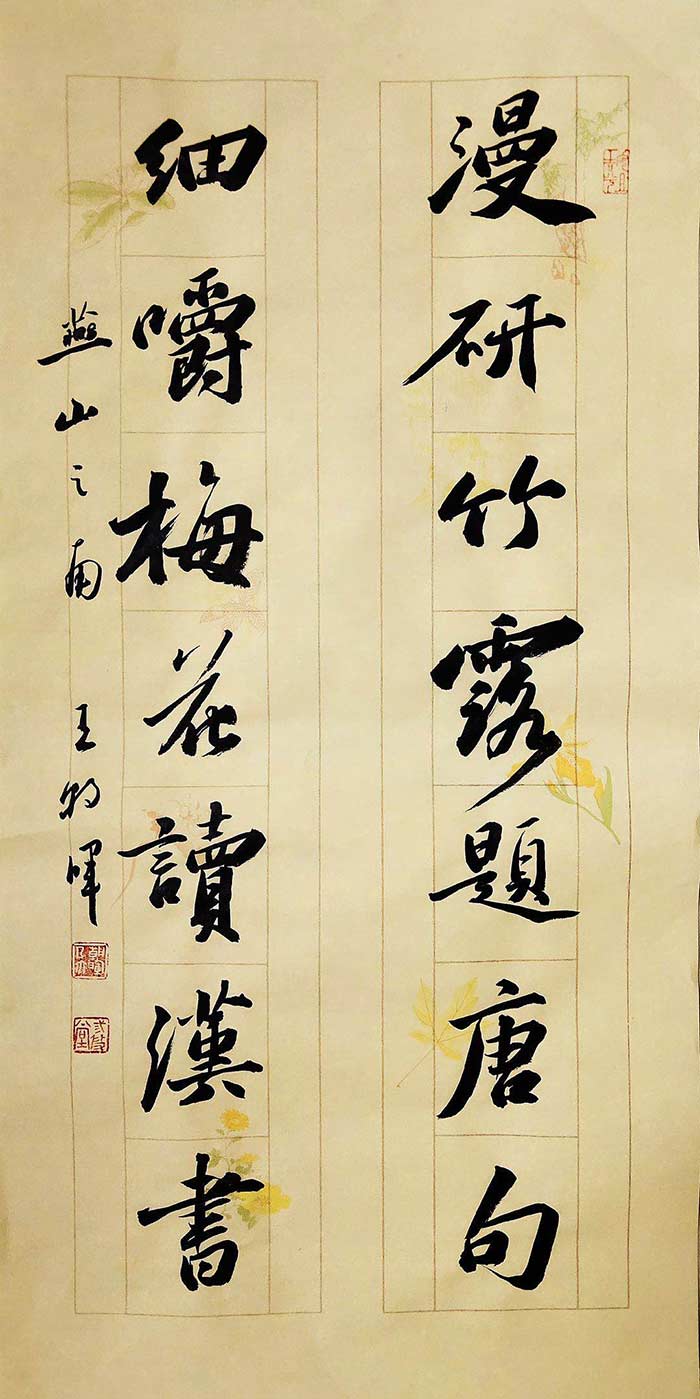 漫研竹露題唐句
細嚼梅花讀漢書
燕山之南 王朝暉